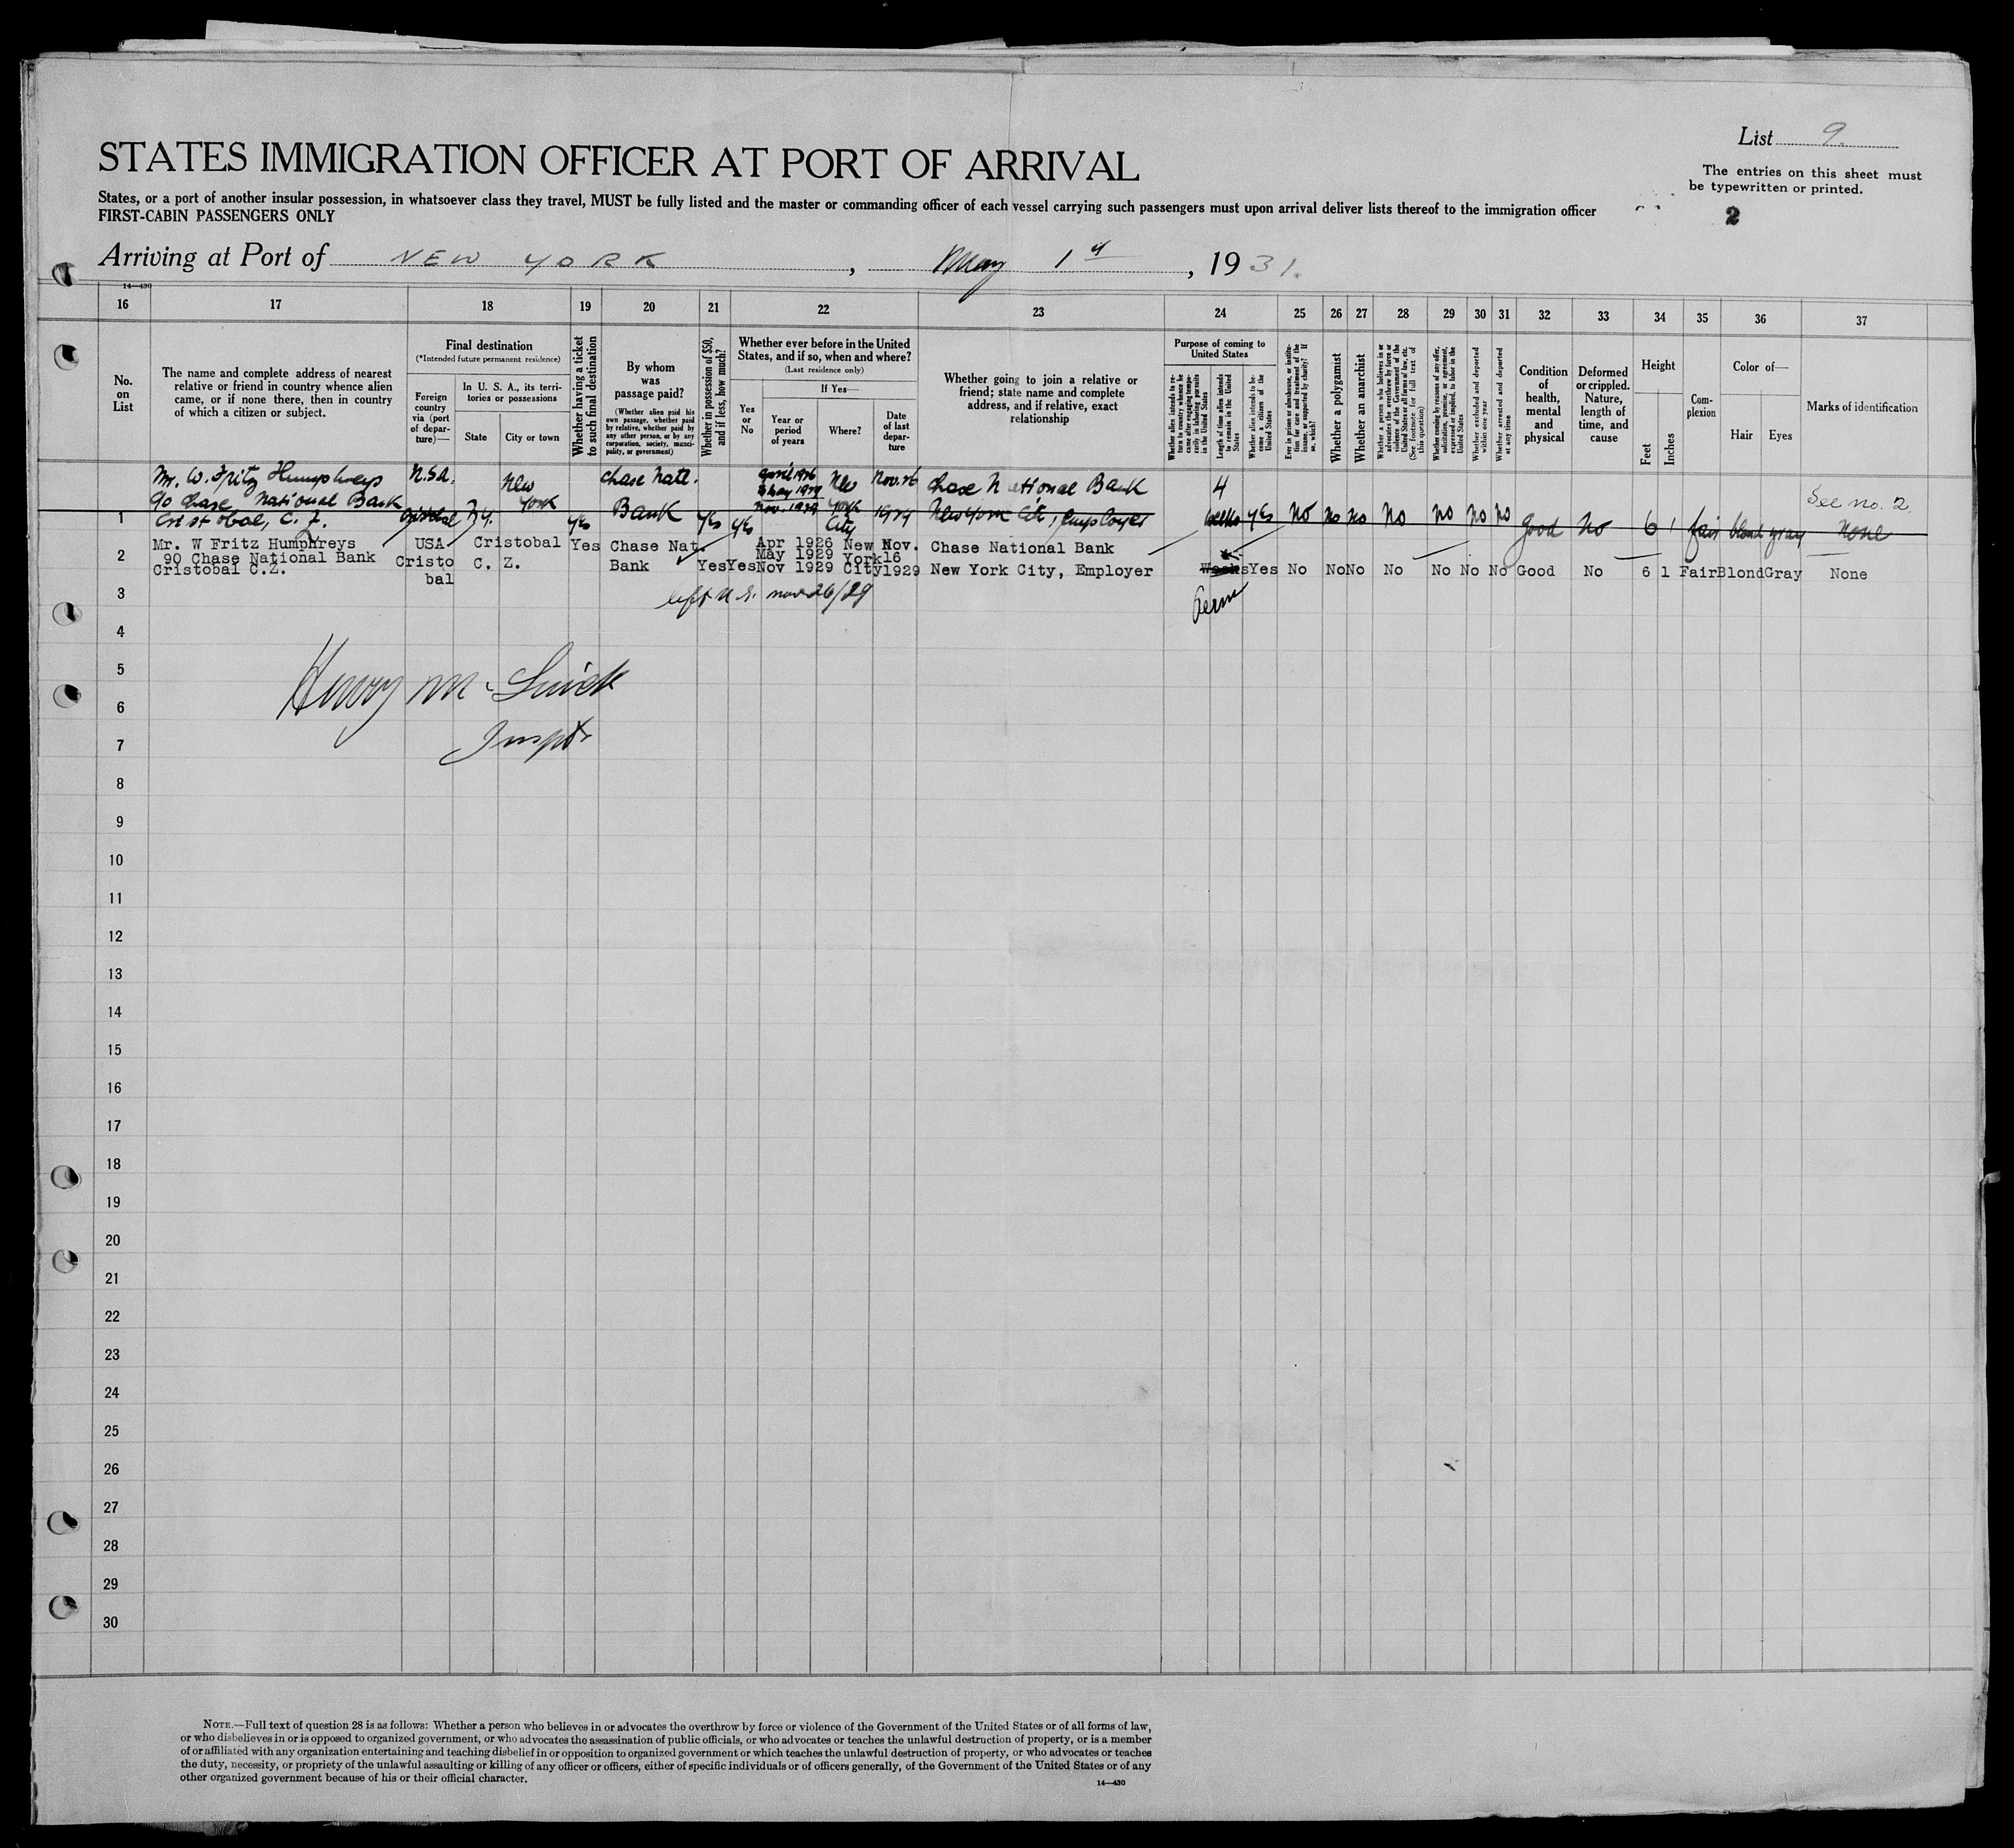 List 9.
STATES IMMIGRATION OFFICER AT PORT OF ARRIVAL
The entries on this sheet must
be typewritten or printed.
States, or a port of another insular possession, in whatsoever class they travel, MUST be fully listed and the master or commanding officer of each vessel carrying such passengers must upon arrival deliver lists thereof to the immigration officer
FIRST-CABIN PASSENGERS ONLY
2
Arriving at Port of NEW YORK, May 1st, 1931.
14—430
16 17 18 19 20 21 22 23 24 25 26 27 28 29 30 31 32 33 34 35 36 37
No.
on
List
The name and complete address of nearest
relative or friend in country whence alien
came, or if none there, then in country
of which a citizen or subject.
Final destination
(*Intended future permanent residence)
Foreign
country
via (port
of depar-
ture)—
In U. S. A., its terri-
tories or possessions
State
City or town
Whether having a ticket
to such final destination
By whom
was
passage paid?
(Whether alien paid his
own passage, whether paid
by relative, whether paid by
any other person, or by any
corporation, society, munici-
pality, or government)
Whether in possession of $50,
and if less, how much?
Whether ever before in the United
States, and if so, when and where?
(Last residence only)
Yes
or
No
If Yes—
Year or
period
of years
Where?
Date
of last
depar-
ture
Whether going to join a relative or
friend; state name and complete
address, and if relative, exact
relationship
Purpose of coming to
United States
Whether alien intends to re-
turn to country whence he
came after engaging tempo-
rarily in laboring pursuits
in the United States
Length of time alien intends
to remain in the United
States
Whether alien intends to be-
come a citizen of the
United States
Ever in prison or almshouse, or institu-
tion for care and treatment of the
insane, or supported by charity? If
so, which?
Whether a polygamist
Whether an anarchist
Whether a person who believes in or
advocates the overthrow by force or
violence of the Government of the
United States or all forms of law, etc.
(See footnote for full text of
this question)
Whether coming by reasons of any offer,
solicitation, promise, or agreement,
expressed or implied, to labor in the
United States
Whether excluded and deported
within one year
Whether arrested and deported
at any time
Condition
of
health,
mental
and
physical
Deformed
or crippled.
Nature,
length of
time, and
cause
Height
Feet
Inches
Com-
plexion
Color of—
Hair
Eyes
Marks of identification
Mr. W. Fritz Humphreys
c/o Chase National Bank
Cristobal, C. Z.
New
York
yes
Chase Natl.
Bank
yes
yes
April 1926
May 1929
Nov. 1929
New
York
City
Nov. 16
1929
Chase National Bank
New York City, Employer
4
weeks
yes
No
no
no
no
no
no
no
good
no
6
1
fair
blond
gray
See no. 2.
none
1
Mr. W Fritz Humphreys
90 Chase National Bank
Cristobal C.Z.
USA
Cristo
bal
Cristobal
C. Z.
Yes
Chase Nat.
Bank
Yes
Yes
Apr 1926
May 1929
Nov 1929
New
York
City
Nov.
16
1929
Chase National Bank
New York City, Employer
Weeks
Yes
No
No
No
No
No
No
No
Good
No
6
1
Fair
Blond
Gray
None
2
left U.S. nov 26/29
Perm
3
4
5
6
Inspt.
7
8
9
10
11
12
13
14
15
16
17
18
19
20
21
22
23
24
25
26
27
28
29
30
NOTE.—Full text of question 28 is as follows: Whether a person who believes in or advocates the overthrow by force or violence of the Government of the United States or of all forms of law,
or who disbelieves in or is opposed to organized government, or who advocates the assassination of public officials, or who advocates or teaches the unlawful destruction of property, or is a member
of or affiliated with any organization entertaining and teaching disbelief in or opposition to organized government or which teaches the unlawful destruction of property, or who advocates or teaches
the duty, necessity, or propriety of the unlawful assaulting or killing of any officer or officers, either of specific individuals or of officers generally, of the Government of the United States or of any
other organized government because of his or their official character.
14—430